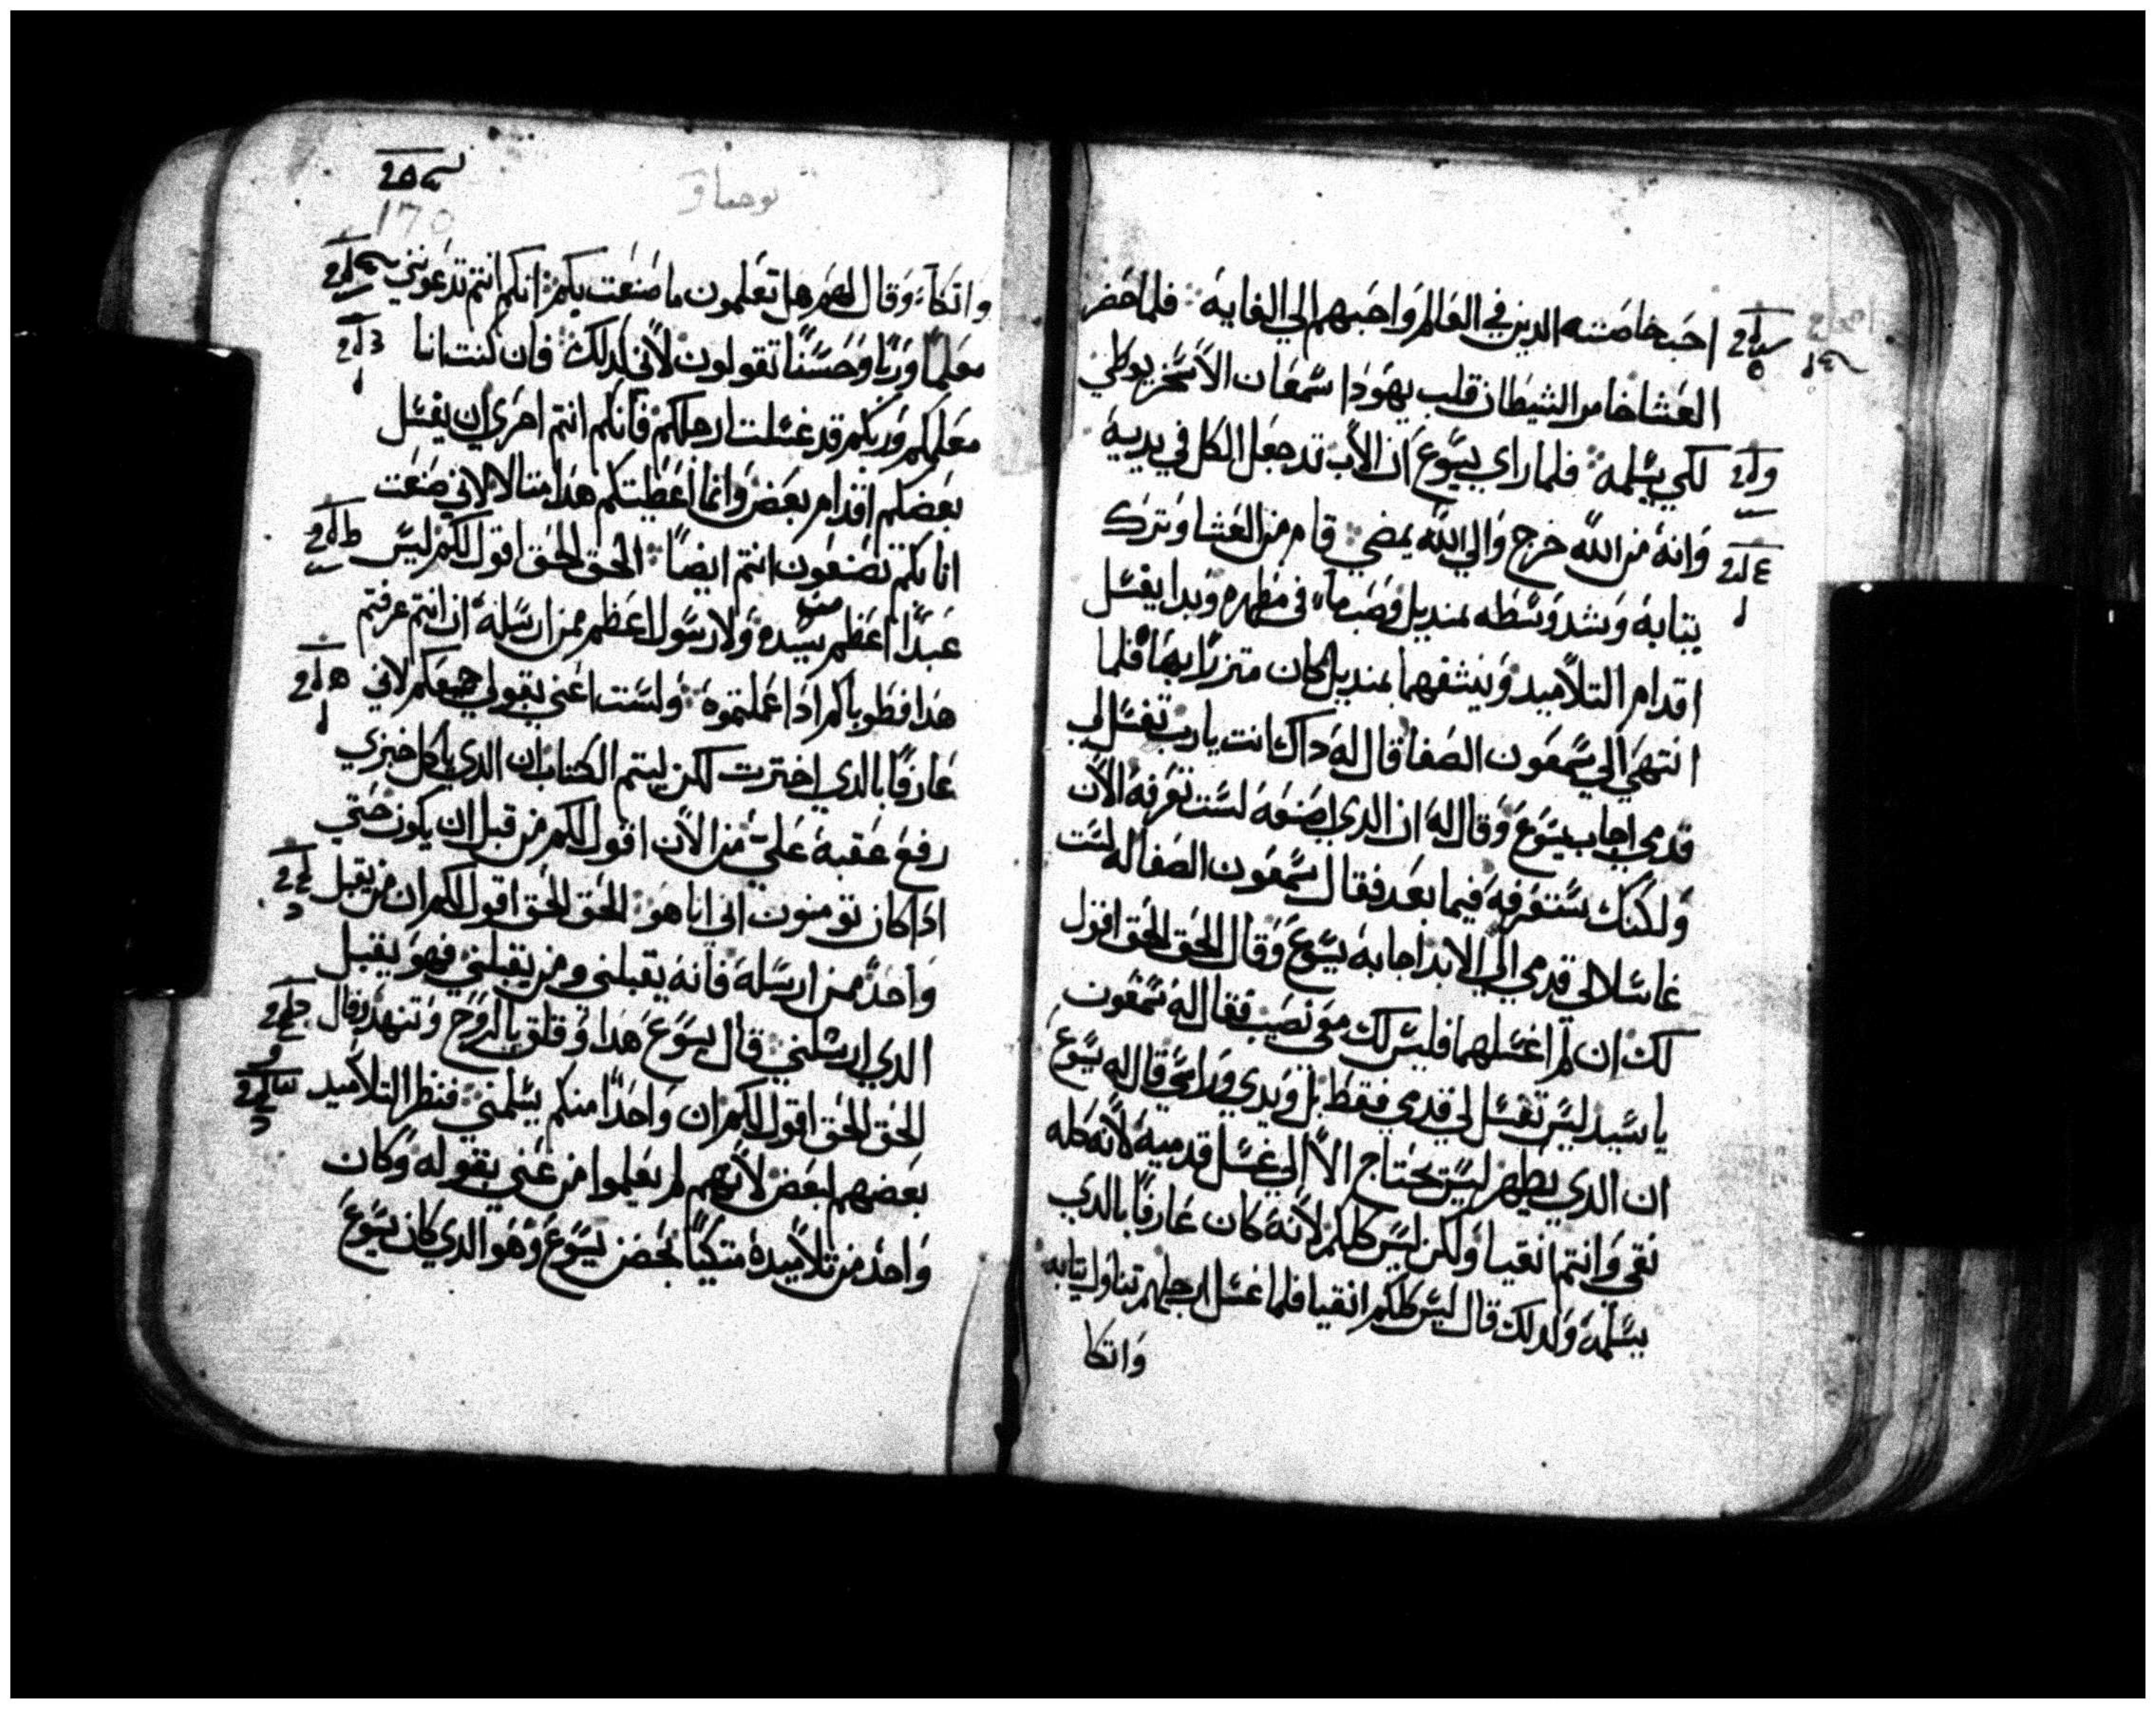 احب خاصته الدين في العالم واحبهم الي الغايه فلما حضر
العشا خامر الشيطان قلب يهودا سمعان الاسخريوطي
لكي يسلمه فلما راي يسوع ان الاب قد جعل الكل في يديه
وانه من الله خرج والي الله يمضي قام من العشا وترك
تيابه وشد وسطه بمنديل وصب ماء في مطهره وبدا يغسل
اقدام التلاميد وينشفهما بمنديل كان متزرا بها فلما
انتهي الي سمعون الصفا قال له داك انت يارب تغسل لي
قدمي اجاب يسوع وقال له ان الدي اصنعه لست تعرفه الان
ولكنك ستعرفه فيما بعد فقال سمعون الصفا له لست
غاسلا لي قدمي الي الابد اجابه يسوع وقال الحق الحق اقول
لك ان لم اغسلهما فليس لك معي نصيب فقال له سمعون
يا سيد ليس تغسل لي قدمي فقط بل ويدي وراسي قال له يسوع
ان الدي يطهر ليس يحتاج الا الي غسل قدميه لانه كله
نقي وانتم انقيا ولكن ليس كلكم لانه كان عارفا بالدي
يسلمه ولدلك قال ليس كلكم انقيا فلما غسل ارجلهم تناول تيابه
واتكا
يوحنا
170
واتكاء وقال لهم هل تعلمون ما صنعت بكم انكم انتم تدعونني
معلما وربا وحسنا تقولون لاني لدلك فان كنت انا
معلمكم وربكم قد غسلت ارجلكم فانكم انتم احري ان يغسل
بعضكم اقدام بعض وانما اعطيتكم هدا متالا لاني صنعت
انا بكم تصنعون انتم ايضا الحق الحق اقول لكم ليس
عبدا اعظم من سيده ولا رسولا اعظم ممن ارسله ان انتم عرفتم
هدا فطوباكم ادا عملتموه ولست اعني بقولي جميعكم لاني
عارفا بالدي اخترت لكن ليتم الكتاب ان الدي ياكل خبزي
رفع عقبه علي من الان اقول لكم من قبل ان يكون حتي
ادا كان تومنون اني انا هو الحق الحق اقول لكم ان من يقبل
واحد ممن ارسله فانه يقبلني ومن يقبلني فهو يقبل
الدي ارسلني قال يسوع هدا وقلق بالروح وتنهد وقال
الحق الحق اقول لكم ان واحدا منكم يسلمني فنظر التلاميد
بعضهم لبعض لانهم لم يعلموا من عني بقوله وكان
واحد من تلاميده متكيا بحضن يسوع وهو الدي كان يسوع